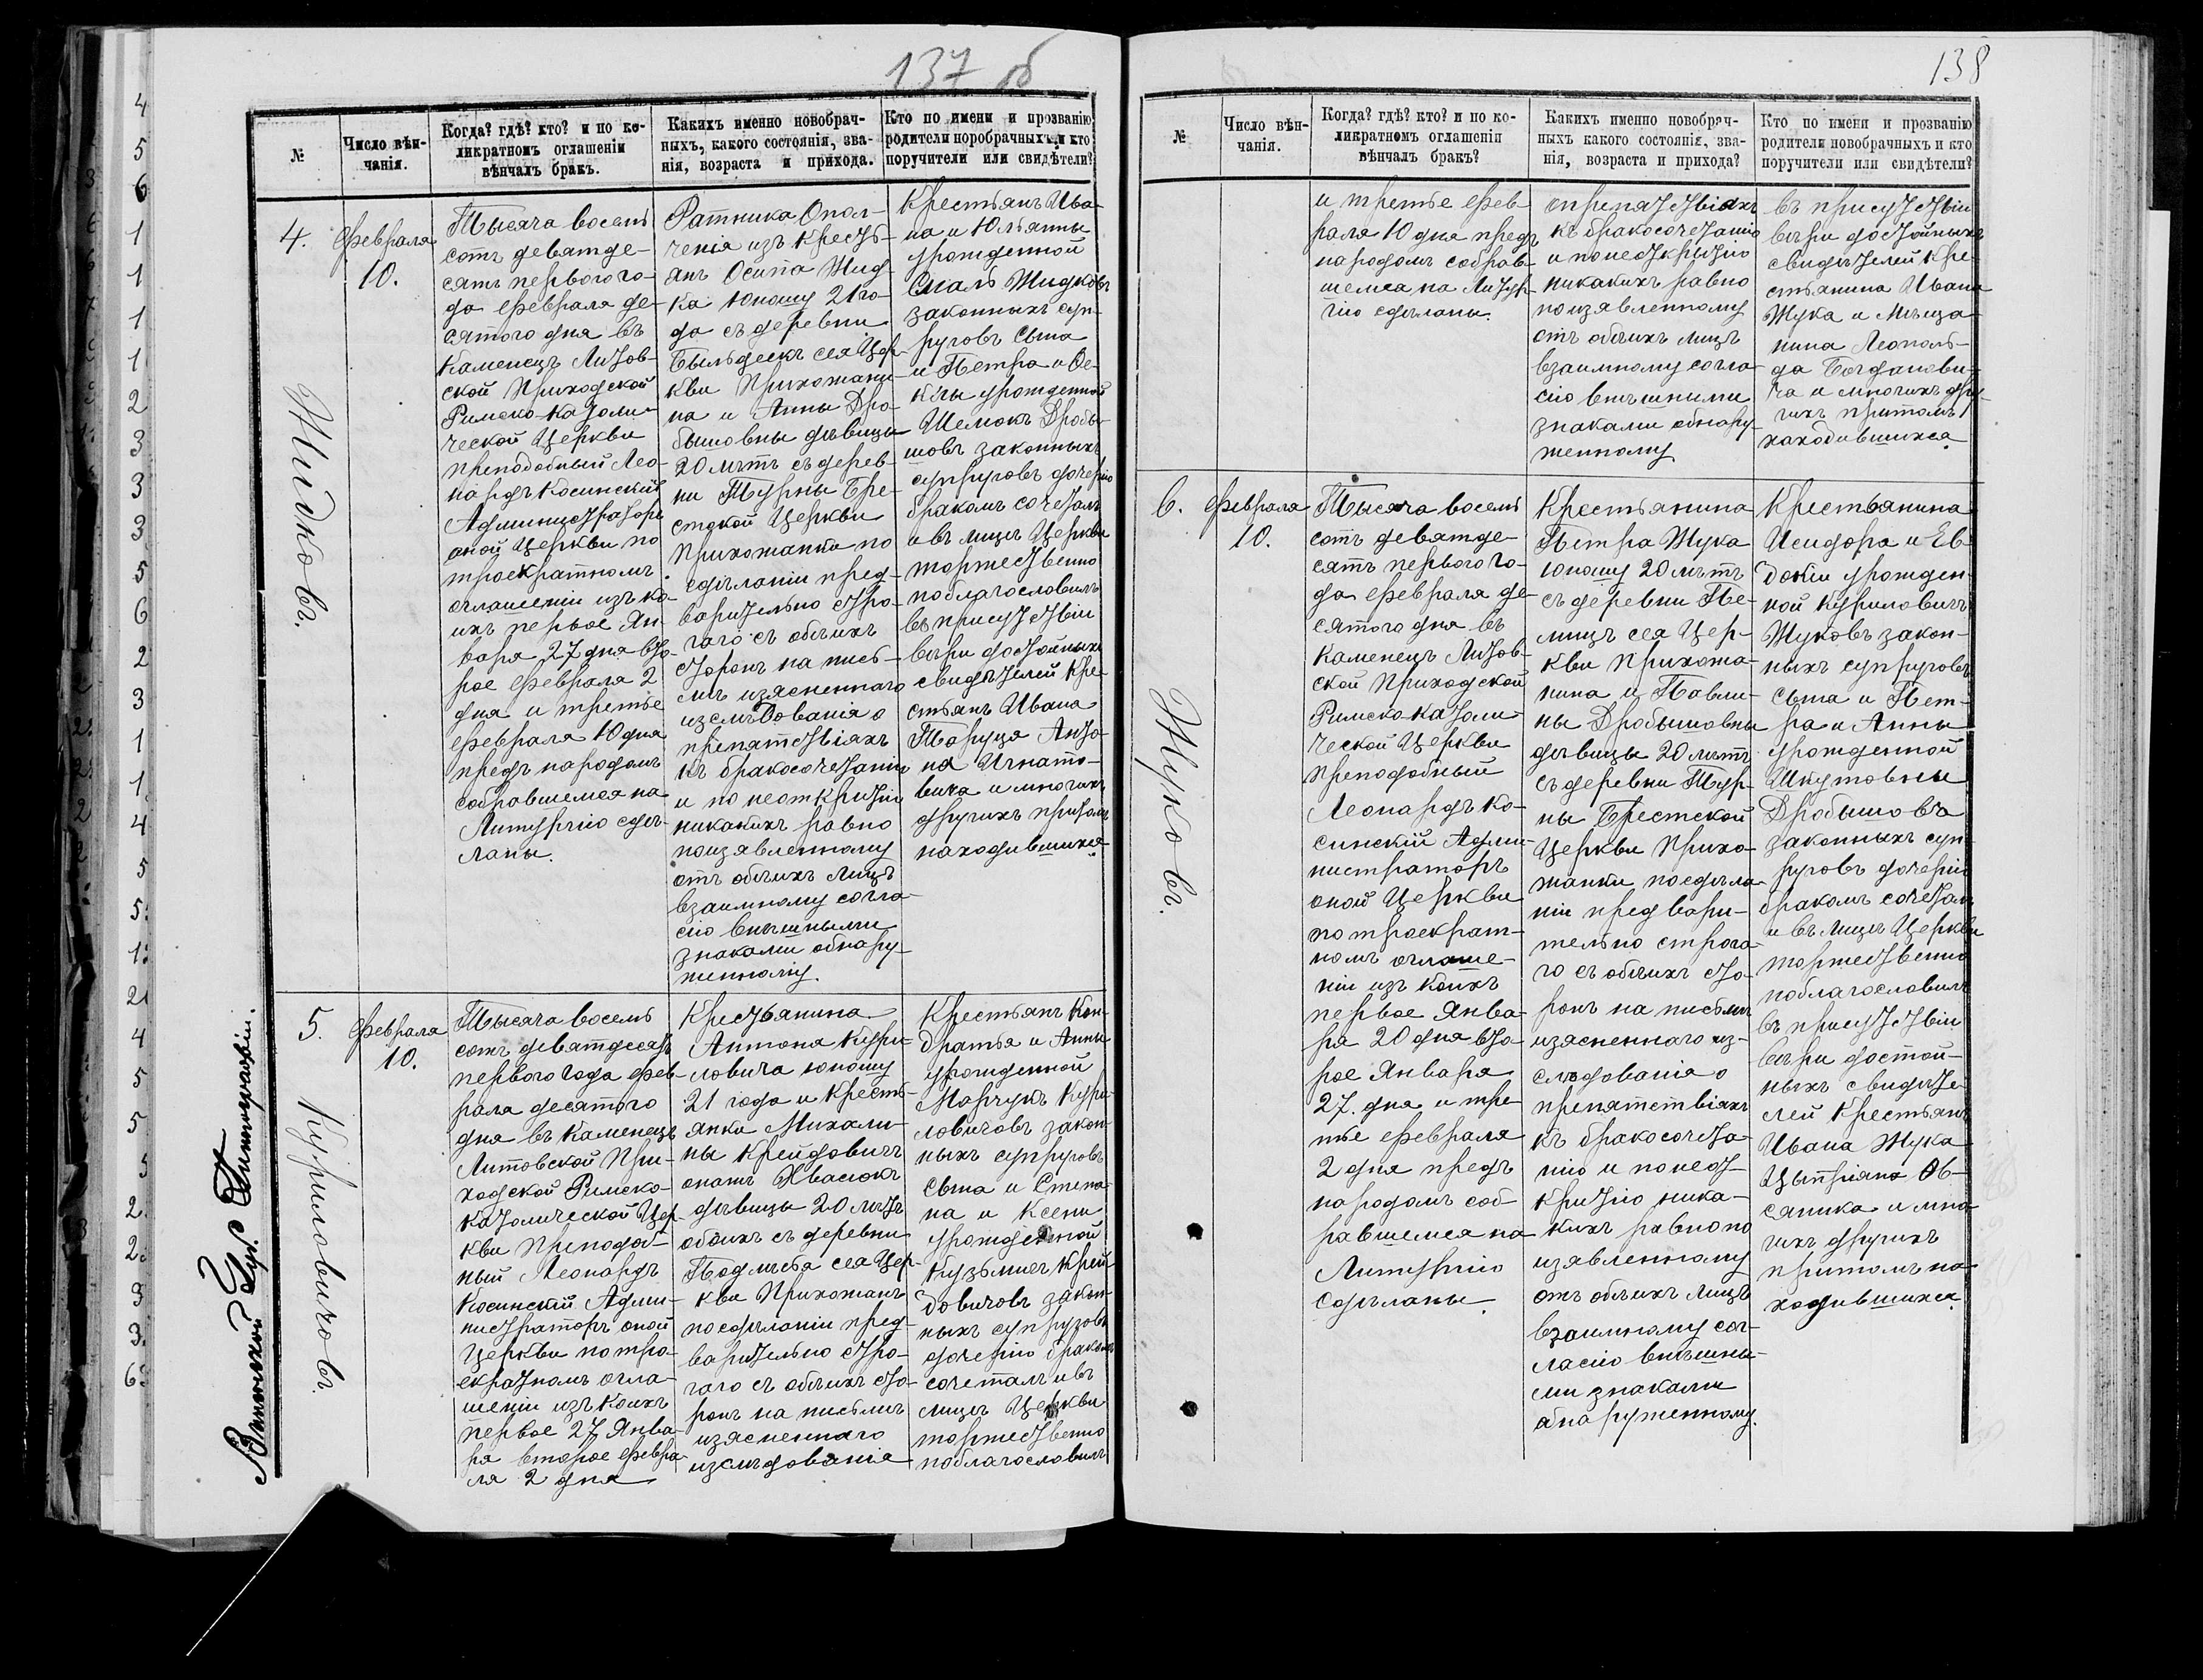 137 об
№
Число вѣн-
чанія.
Когда? гдѣ? кто? и по ко-
ликратномъ оглашеніи
вѣнчалъ бракъ.
Какихъ именно новобрач-
ныхъ, какого состоянія, зва-
нія, возраста и прихода.
Кто по имени и прозванію
родители норобрачныхъ, и кто
поручители или свидѣтели?
4.
Февраля
10.
Жидковъ.
Тысяча восемь
сотъ девятде-
сятъ первого го-
да Февраля де-
сятого дня въ
Каменецъ Литов-
ской Приходской
Римско-Католи-
ческой Церкви
преподобный Лео-
нардъ Косинскій
Администраторъ
оной Церкви по
троекратномъ
оглашеніи изъ ко-
ихъ первое Ян-
варя 27 дня вто-
рое Февраля 2
дня и третье
Февраля 10 дня
предъ народомъ
собравшемся на
Литургію сдѣ-
ланы.
Ратника Опол-
ченія изъ Кресть-
янъ Осипа Жид-
ка юношу 21 го-
да съ деревни
сея Цер-
кви Прихожани-
на и Анны Дро-
бышовны дѣвицы
20 лѣтъ съ дерев-
ни Турны Бре-
стской Церкви
Прихожанки по
сдѣланіи пред-
варительно стро-
гаго съ обѣихъ
сторонъ на пись-
мѣ изясненнаго
изслѣдованія о
препятствіяхъ
къ бракосочетанію
и по неоткрытію
никакихъ равно
поизявленному
отъ обѣихъ лицъ
взаимному согла-
сію внѣшными
знаками обнару-
женному.
Крестьянъ Ива-
на и Юльянны
урожденной
Жидковъ
законныхъ суп-
руговъ Сына
и Петра и Ѳе-
клы урожденной
Шемокъ Дробы-
шовъ законныхъ
супруговъ дочерію
бракомъ сочеталъ
и въ лицѣ Церкви
торжественно
поблагословилъ
въ присутствіи
вѣры достойныхъ
свидѣтелей Кре-
стьянъ Ивана
Антo-
на Игнато-
вика и многихъ
другихъ притомъ
находившихся
5.
Февраля
10.
Куриловичовъ.
Тысяча восемь
сотъ девятдесятъ
первого года Фев-
раля десятого
дня въ Каменецъ
Литовской При-
ходской Римско-
католической Цер-
кви Преподоб-
ный Леонардъ
Косинскій Адми-
нистраторъ оной
Церкви по тро-
екратномъ огла-
шеніи изъ коихъ
первое 27 Янва-
ря второе Февра-
ля 2 дня
Крестьянина
Антона Кури-
ловича юношу
21 года и Кресть-
янки Михали-
ны Крейдовичъ
Квасюкъ
дѣвицы 20 лѣтъ
обоихъ съ деревни
сея Цер-
кви Прихожанъ
по сдѣланіи пред-
варительно стро-
гаго съ обѣихъ сто-
ронъ на письмѣ
изясненнаго
изслѣдованія
Крестьянъ Кон-
дратья и Анны
урожденной
Марчукъ Кури-
ловичовъ закон-
ныхъ супруговъ
Сына и Степа-
на и Ксени
урожденной
Кузьмичъ Крей-
довичовъ закон-
ныхъ супруговъ
дочерію бракомъ
сочеталъ и въ
лицѣ Церкви
торжественно
поблагословилъ
138
№
Число вѣн-
чанія.
Когда? гдѣ? кто? и по ко-
ликратномъ оглашеніи
вѣнчалъ бракъ?
Какихъ именно новобрач-
ныхъ какого состоянія, зва-
нія, возраста и прихода?
Кто по имени и прозванію
родители новобрачныхъ и кто
поручители или свидѣтели?
и третье Фев-
раля 10 дня предъ
народомъ собрав-
шемся на Литур-
гію сдѣланы.
о препятствіяхъ
къ бракосочетанію
и по неоткрытію
никакихъ равно
поизявленному
отъ обѣихъ лицъ
взаимному согла-
сію внѣшними
знаками обнару-
женному
въ присутствіи
вѣры достойныхъ
свидѣтелей Кре-
стьянина Ивана
Жука и Мѣща-
нина Леополь-
да Богданови-
ча и многихъ дру-
гихъ притомъ
находившихся
6.
Февраля
10.
Жуковъ.
Тысяча восемь
сотъ девятде-
сятъ первого го-
да Февраля де-
сятого дня въ
Каменецъ Литов-
ской Приходской
Римско Католи-
ческой Церкви
Преподобный
Леонардъ Ко-
синскій Адми-
нистраторъ
оной Церкви
по троекрат-
номъ оглаше-
ніи изъ коихъ
первое Янва-
ря 20 дня вто-
рое Января
27. дня и тре-
тье Февраля
2 дня предъ
народомъ соб-
равшемся на
Литургію
Сдѣланы.
Крестьянина
Петра Жука
юношу 20 лѣтъ
съ деревни Пе-
лищъ сея Цер-
кви Прихожа-
нина и Павли-
ны Дробышовны
дѣвицы 20 лѣтъ
съ деревни Тур-
ны Брестской
Церкви Прихо-
жанки по сдѣла-
ніи предвари-
тельно строга-
го съ обѣихъ сто-
ронъ на письмѣ
изясненнаго из-
слѣдованія о
препятствіяхъ
къ бракосочета-
нію и по неот-
крытію ника-
кихъ равно по
изявленному
отъ обѣихъ лицъ
взаимному сог-
ласію внѣшны-
ми знаками
обнаруженному.
Крестьянина
Исидора и Ев-
докіи урожден-
ной Куриловичъ
Жуковъ закон-
ныхъ супруговъ
Сына и Пет-
ра и Анны
урожденной
Шкутовны
Дробышовъ
законныхъ суп-
руговъ дочерію
бракомъ сочеталъ
и въ лицѣ Церкви
торжественно
поблагословилъ
въ присутствіи
вѣры достой-
ныхъ свидѣте-
лей Крестьянъ
Ивана Жука
Цыпріяна Ов-
сяника и мно-
гихъ другихъ
притомъ на-
ходившихся